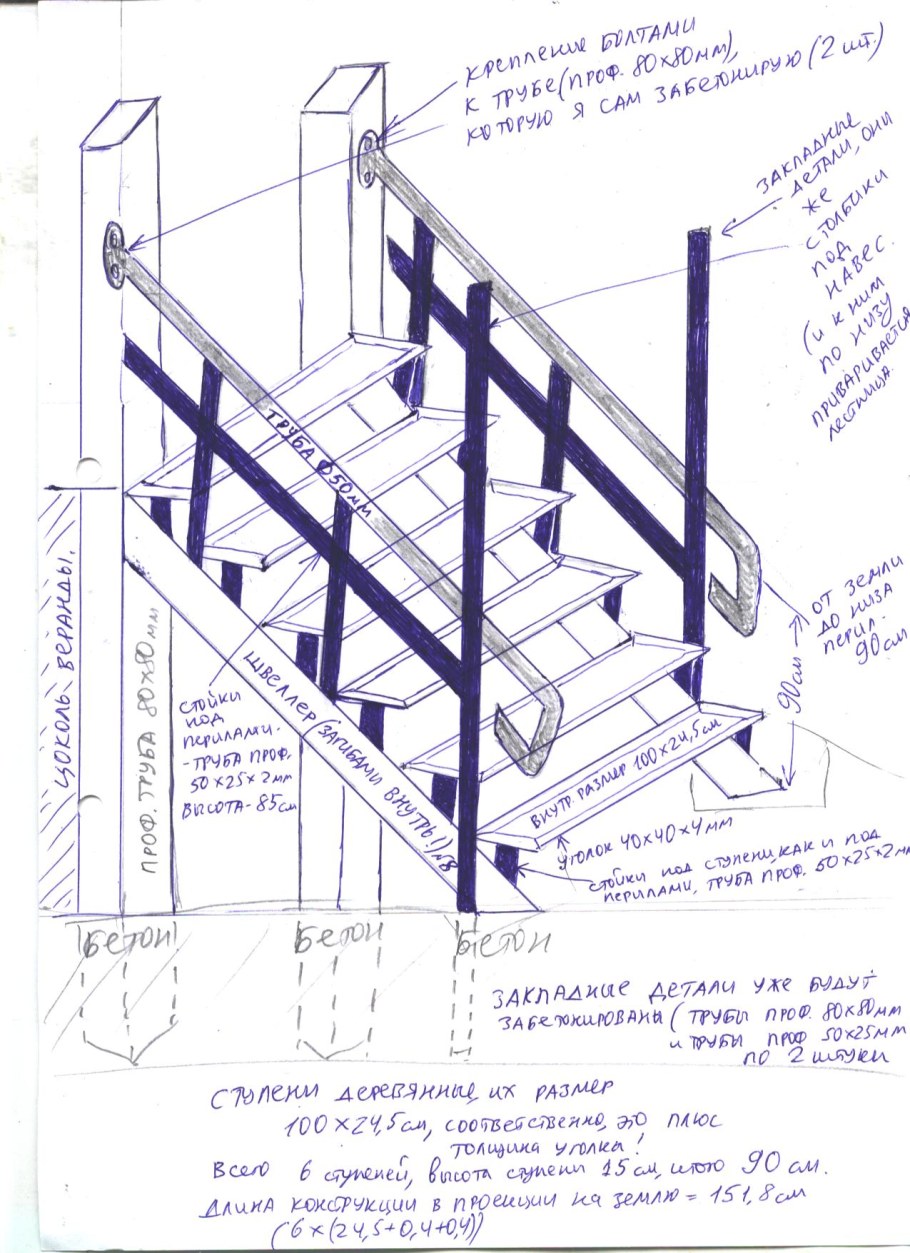 КРЕПЛЕНИЕ БОЛТАМИ
К ТРУБЕ (ПРОФ. 80х80мм),
КОТОРУЮ Я САМ ЗАБЕТОНИРУЮ (2 шт.)
ЗАКЛАДНЫЕ
ДЕТАЛИ, ОНИ
ЖЕ
СТОЛБИКИ
ПОД
НАВЕС.
(и к ним
по низу
ПРИВАРИВАЕТСЯ
лестница
ТРУБА Ф50мм
ЦОКОЛЬ ВЕРАНДЫ.
ПРОФ. ТРУБА 80х80 мм
СТОЙКИ
ПОД
ПЕРИЛАМИ-
-ТРУБА ПРОФ.
50х25х2мм
ВЫСОТА-85см
ШВЕЛЛЕР (ЗАГИБАМИ ВНУТРЬ!) №8
ОТ ЗЕМЛИ
ДО НИЗА
ПЕРИЛ-
90см
90см
ВНУТР. РАЗМЕР 100х24,5см
УГОЛОК 40х40х4мм
СТОЙКИ ПОД СТУПЕНИ, КАК И ПОД
ПЕРИЛАМИ, ТРУБА ПРОФ. 50х25х2м
БЕТОН
БЕТОН
БЕТОН
ЗАКЛАДНЫЕ ДЕТАЛИ УЖЕ БУДУТ
ЗАБЕТОНИРОВАНЫ (ТРУБЫ ПРОФ. 80х80мм
и ТРУБЫ ПРОФ 50х25мм
по 2 штуки
СТУПЕНИ ДЕРЕВЯННЫЕ, ИХ РАЗМЕР
100х24,5см, соответственно, это плюс
толщина уголка!
Всего 6 ступеней, высота ступени 15см, итого 90 см.
ДЛИНА КОНСТРУКЦИИ В ПРОЕКЦИИ НА ЗЕМЛЮ = 151,8см
(6х(24,5+0,4+0,4))